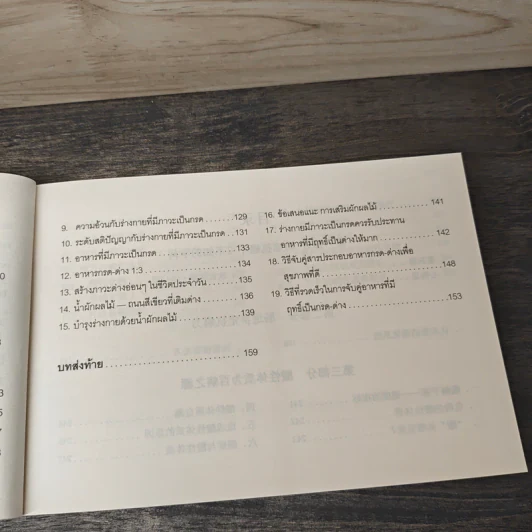 9. ความอ้วนกับร่างกายที่มีภาวะเป็นกรด ........129
10. ระดับสติปัญญากับร่างกายที่มีภาวะเป็นกรด ..131
11. อาหารที่มีภาวะเป็นกรด ...................133
12. อาหารกรด-ด่าง 1:3 ......................134
13. สร้างภาวะด่างอ่อนๆ ในชีวิตประจำวัน .......135
14. น้ำผักผลไม้ — ถนนสีเขียวที่เติมด่าง ........136
15. บำรุงร่างกายด้วยน้ำผักผลไม้ ...............139
บทส่งท้าย ........................... 159
16. ข้อเสนอแนะ การเสริมผักผลไม้ ............. 141
17. ร่างกายมีภาวะเป็นกรดควรรับประทาน
อาหารที่มีฤทธิ์เป็นด่างให้มาก .............. 142
18. วิธีจับคู่สารประกอบอาหารกรด-ด่างเพื่อ
สุขภาพที่ดี ............................148
19. วิธีที่รวดเร็วในการจับคู่อาหารที่มี
ฤทธิ์เป็นกรด-ด่าง .......................153